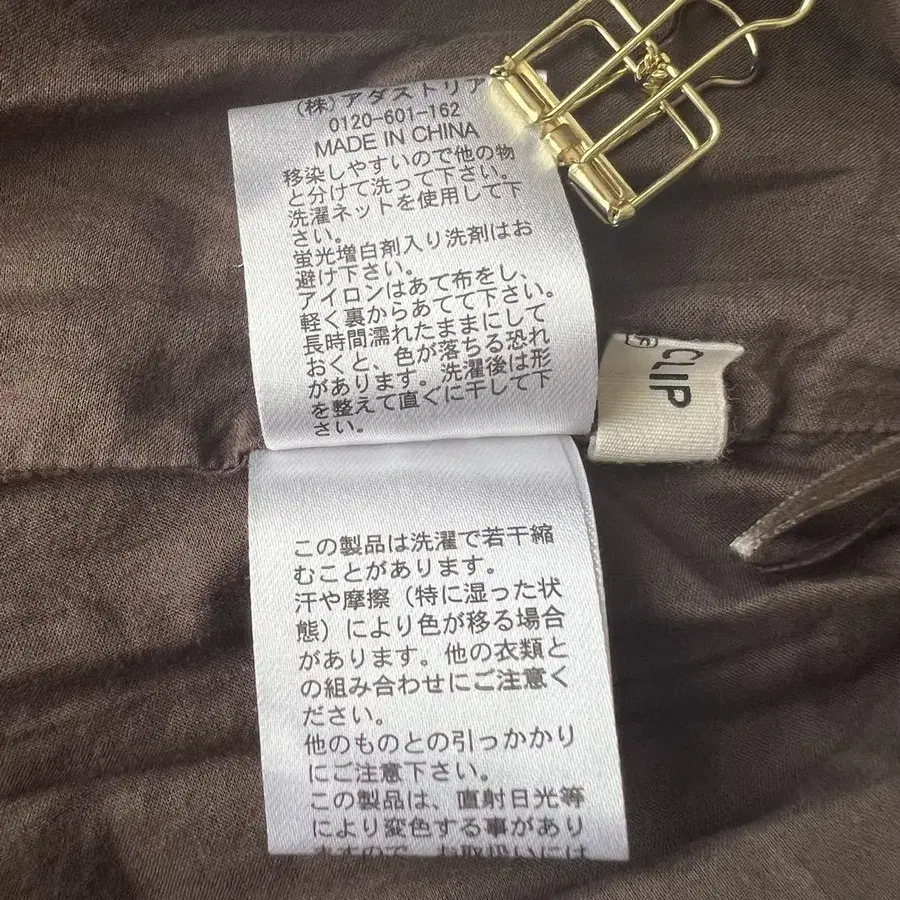 (株)アダストリア
0120-601-162
MADE IN CHINA
移染しやすいので他の物
と分けて洗って下さい。
洗濯ネットを使用して下
さい。
蛍光増白剤入り洗剤はお
避け下さい。
アイロンはあて布をし、
軽く裏からあてて下さい。
長時間濡れたままにして
おくと、色が落ちる恐れ
があります。洗濯後は形
を整えて直ぐに干して下
さい。
CLIP
この製品は洗濯で若干縮
むことがあります。
汗や摩擦（特に湿った状
態）により色が移る場合
があります。他の衣類と
の組み合わせにご注意く
ださい。
他のものとの引っかかり
にご注意下さい。
この製品は、直射日光等
により変色する事があり
ますので、お取扱いには